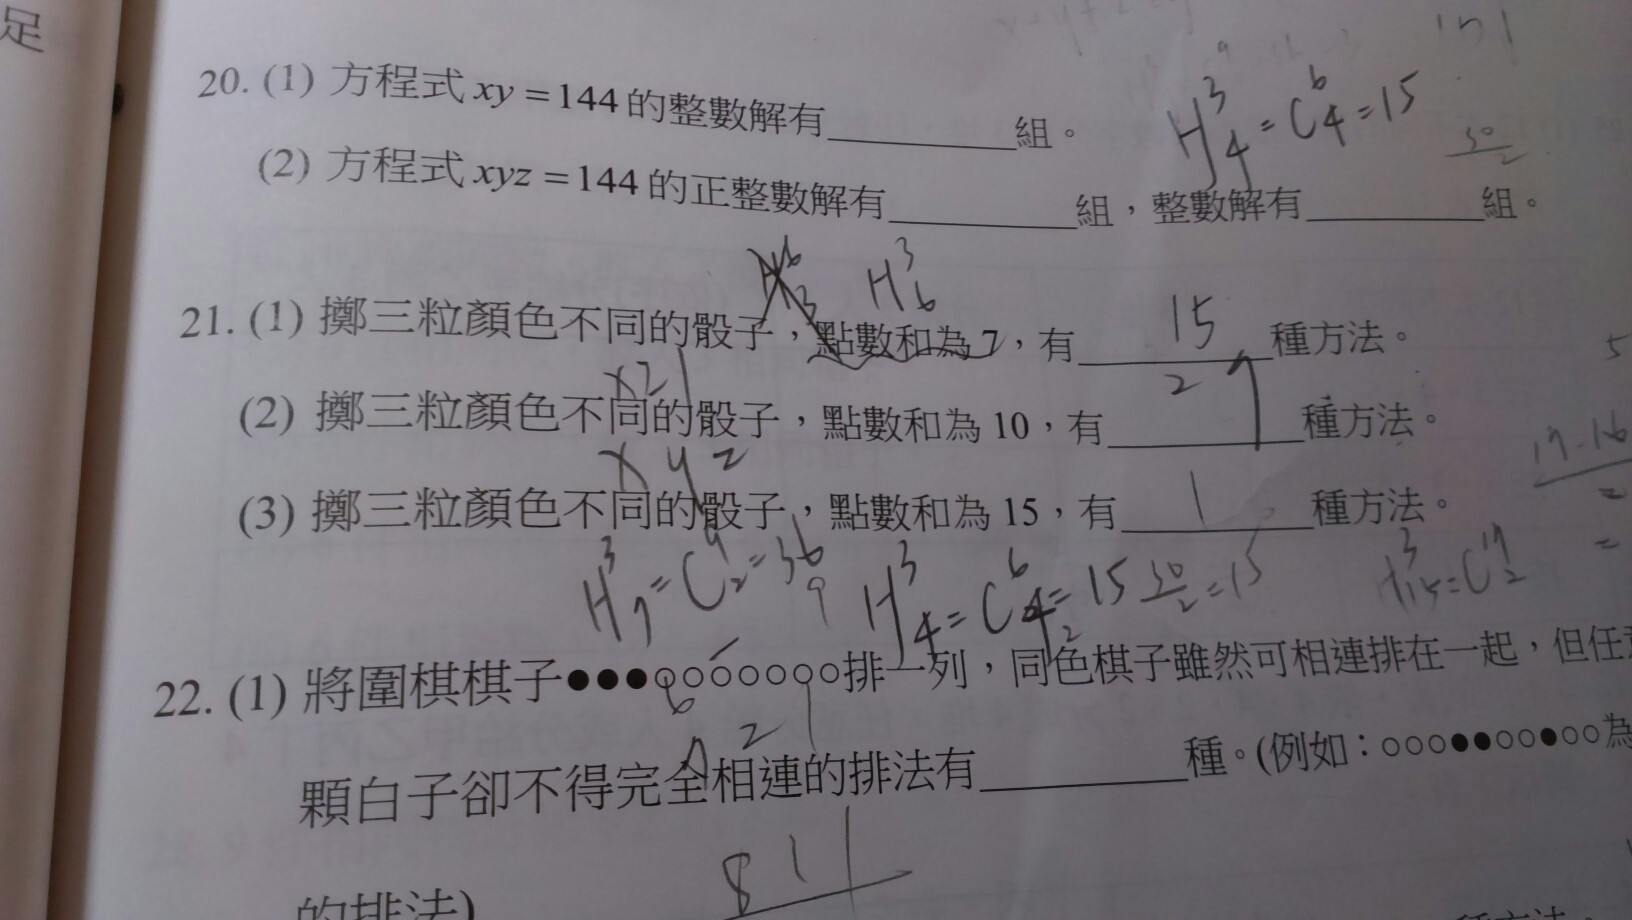 足
20. (1) 方程式 xy = 144 的整數解有________組。
H³₄ = C⁶₄ = 15
30/2
(2) 方程式 xyz = 144 的正整數解有________組,整數解有________組。
H³₆
21. (1) 擲三粒顏色不同的骰子,點數和為 7,有 15 種方法。
(2) 擲三粒顏色不同的骰子,點數和為 10,有 27 種方法。
x y z
(3) 擲三粒顏色不同的骰子,點數和為 15,有 1 種方法。
H³₇ = C⁹₂ = 36
H³₄ = C⁶₄ = 15 30/2 = 15
17·16/2 =
22. (1) 將圍棋棋子●●●○○○○○○○排一列,同色棋子雖然可相連排在一起,但任
6
7 2 1
顆白子卻不得完全相連的排法有________種。(例如:○○○●●○○●○○為
8 1 1
的排法)